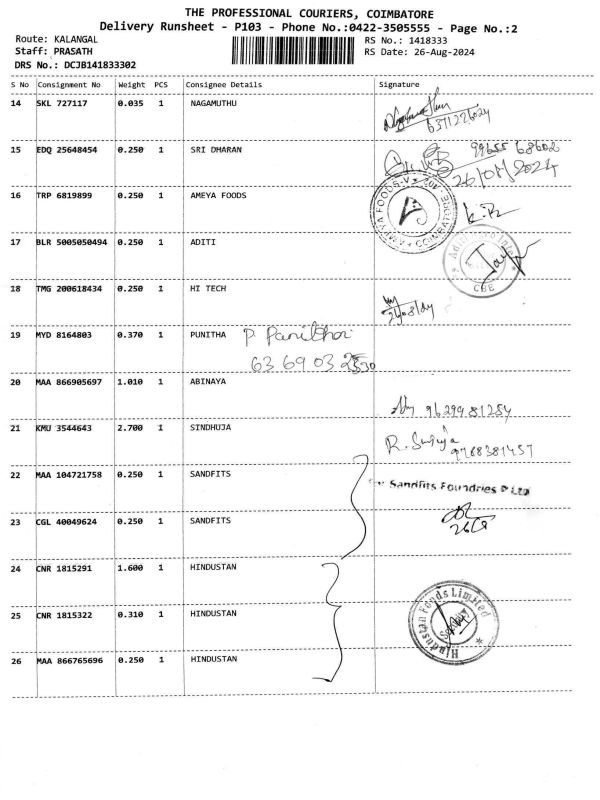 THE PROFESSIONAL COURIERS, COIMBATORE
Delivery Runsheet - P103 - Phone No.:0422-3505555 - Page No.:2
Route: KALANGAL
RS No.: 1418333
Staff: PRASATH
RS Date: 26-Aug-2024
DRS No.: DCJB141833302
S No Consignment No Weight PCS Consignee Details Signature
14 SKL 727117 0.035 1 NAGAMUTHU
15 EDQ 25648454 0.250 1 SRI DHARAN
26/08/2024
16 TRP 6819899 0.250 1 AMEYA FOODS
AMEYA FOODS
COIMBATORE
17 BLR 5005050494 0.250 1 ADITI
CBE
18 TMG 200618434 0.250 1 HI TECH
26/08/24
19 MYD 8164803 0.370 1 PUNITHA P. Panitha
63 69 03
20 MAA 866905697 1.010 1 ABINAYA
96299 81254
21 KMU 3544643 2.700 1 SINDHUJA
9788381457
22 MAA 104721758 0.250 1 SANDFITS
For Sandfits Foundries P Ltd
23 CGL 40049624 0.250 1 SANDFITS
24 CNR 1815291 1.600 1 HINDUSTAN
25 CNR 1815322 0.310 1 HINDUSTAN
Hindustan Foods Limited
26 MAA 866765696 0.250 1 HINDUSTAN